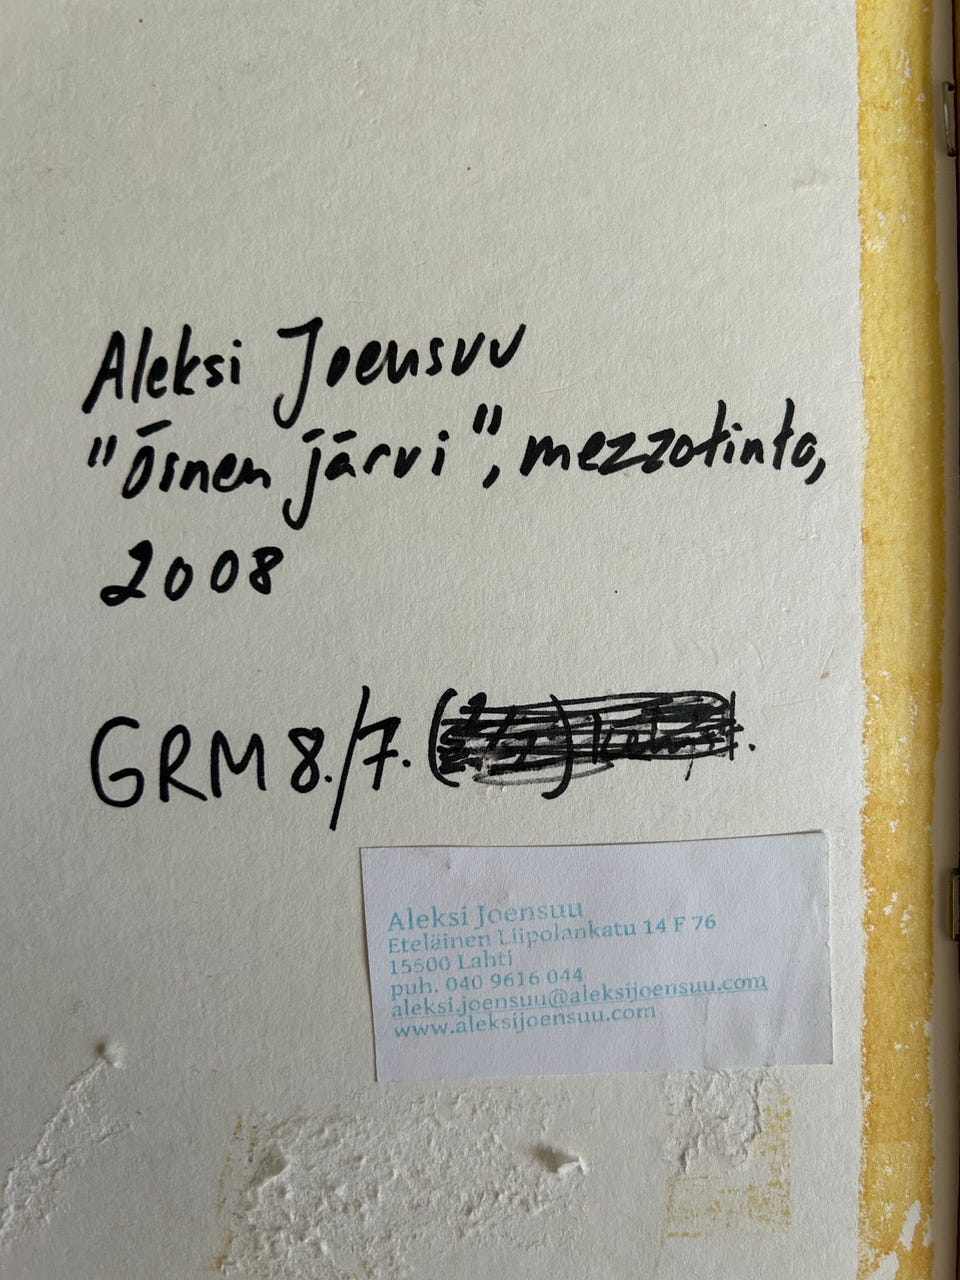 Aleksi Joensuu
"Öinen järvi", mezzotinto,
2008
GRM 8./7.
Aleksi Joensuu
Eteläinen Liipolankatu 14 F 76
15500 Lahti
puh. 040 9616 044
aleksi.joensuu@aleksijoensuu.com
www.aleksijoensuu.com